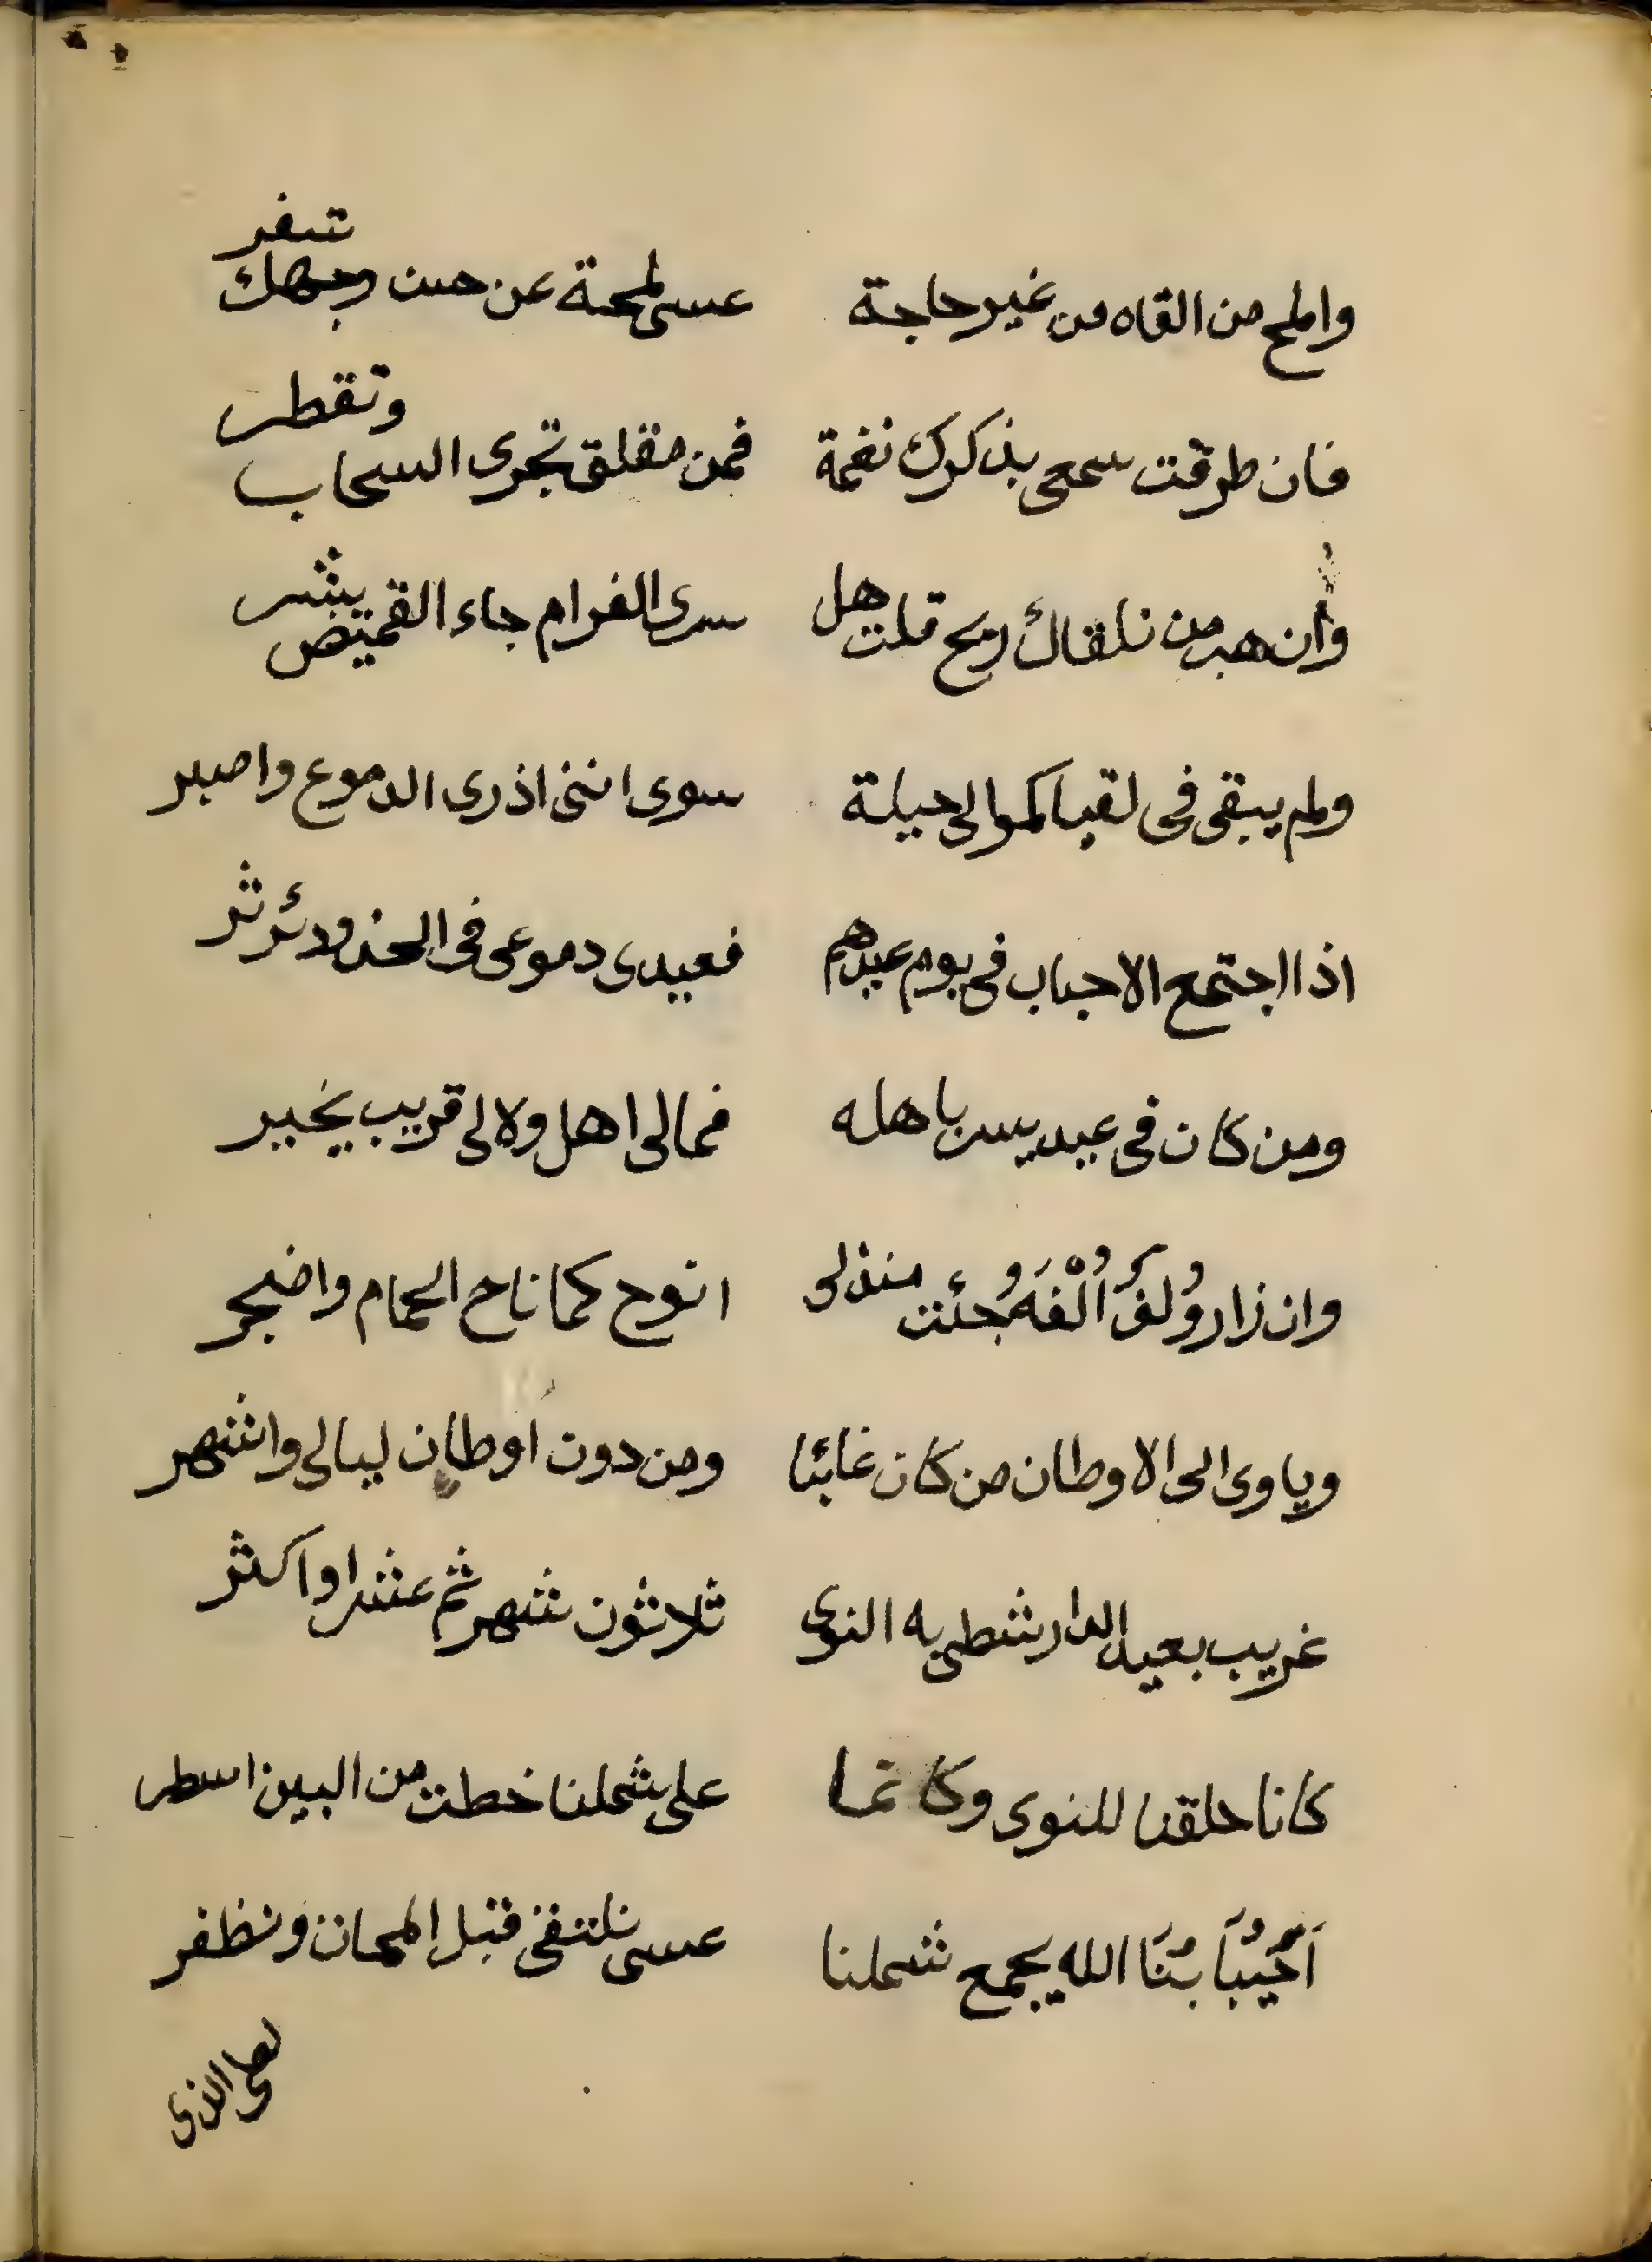 والمح من القاه من غير حاجة عسى لمحة عن حسن وجهك تسفر
فان طرقت سمعى بذكرك نغمة فمن مقلتى تجرى السحاب وتقطر
وان هب من تلقاك ريح قلت هل سرى الغرام جاء القميص يبشر
ولم يبقى فى لقياكموا لى حيلة سوى اننى اذرى الدموع واصبر
اذا اجتمع الاحباب فى يوم عيدهم فعيدى دموعى فى الخدود
ومن كان فى عيد يسر باهله فما لى اهل ولا لى قريب يخبر
وان زار وُلفٌ اُلْفَهُ جئت منزلى انوح كما ناح الحمام واضجر
وياوى الى الاوطان من كان غائبا ومن دون اوطانى ليالى واشهر
غريب بعيد الدار شطى به النوى ثلاثون شهر ثم عشرا واكثر
كانا خلقنا للنوى وكانما على شملنا خطت من البين اسطر
اَحْبَابَنَا الله يجمع شملنا عسى نلتقى قبل الممات ونظفر
الذى